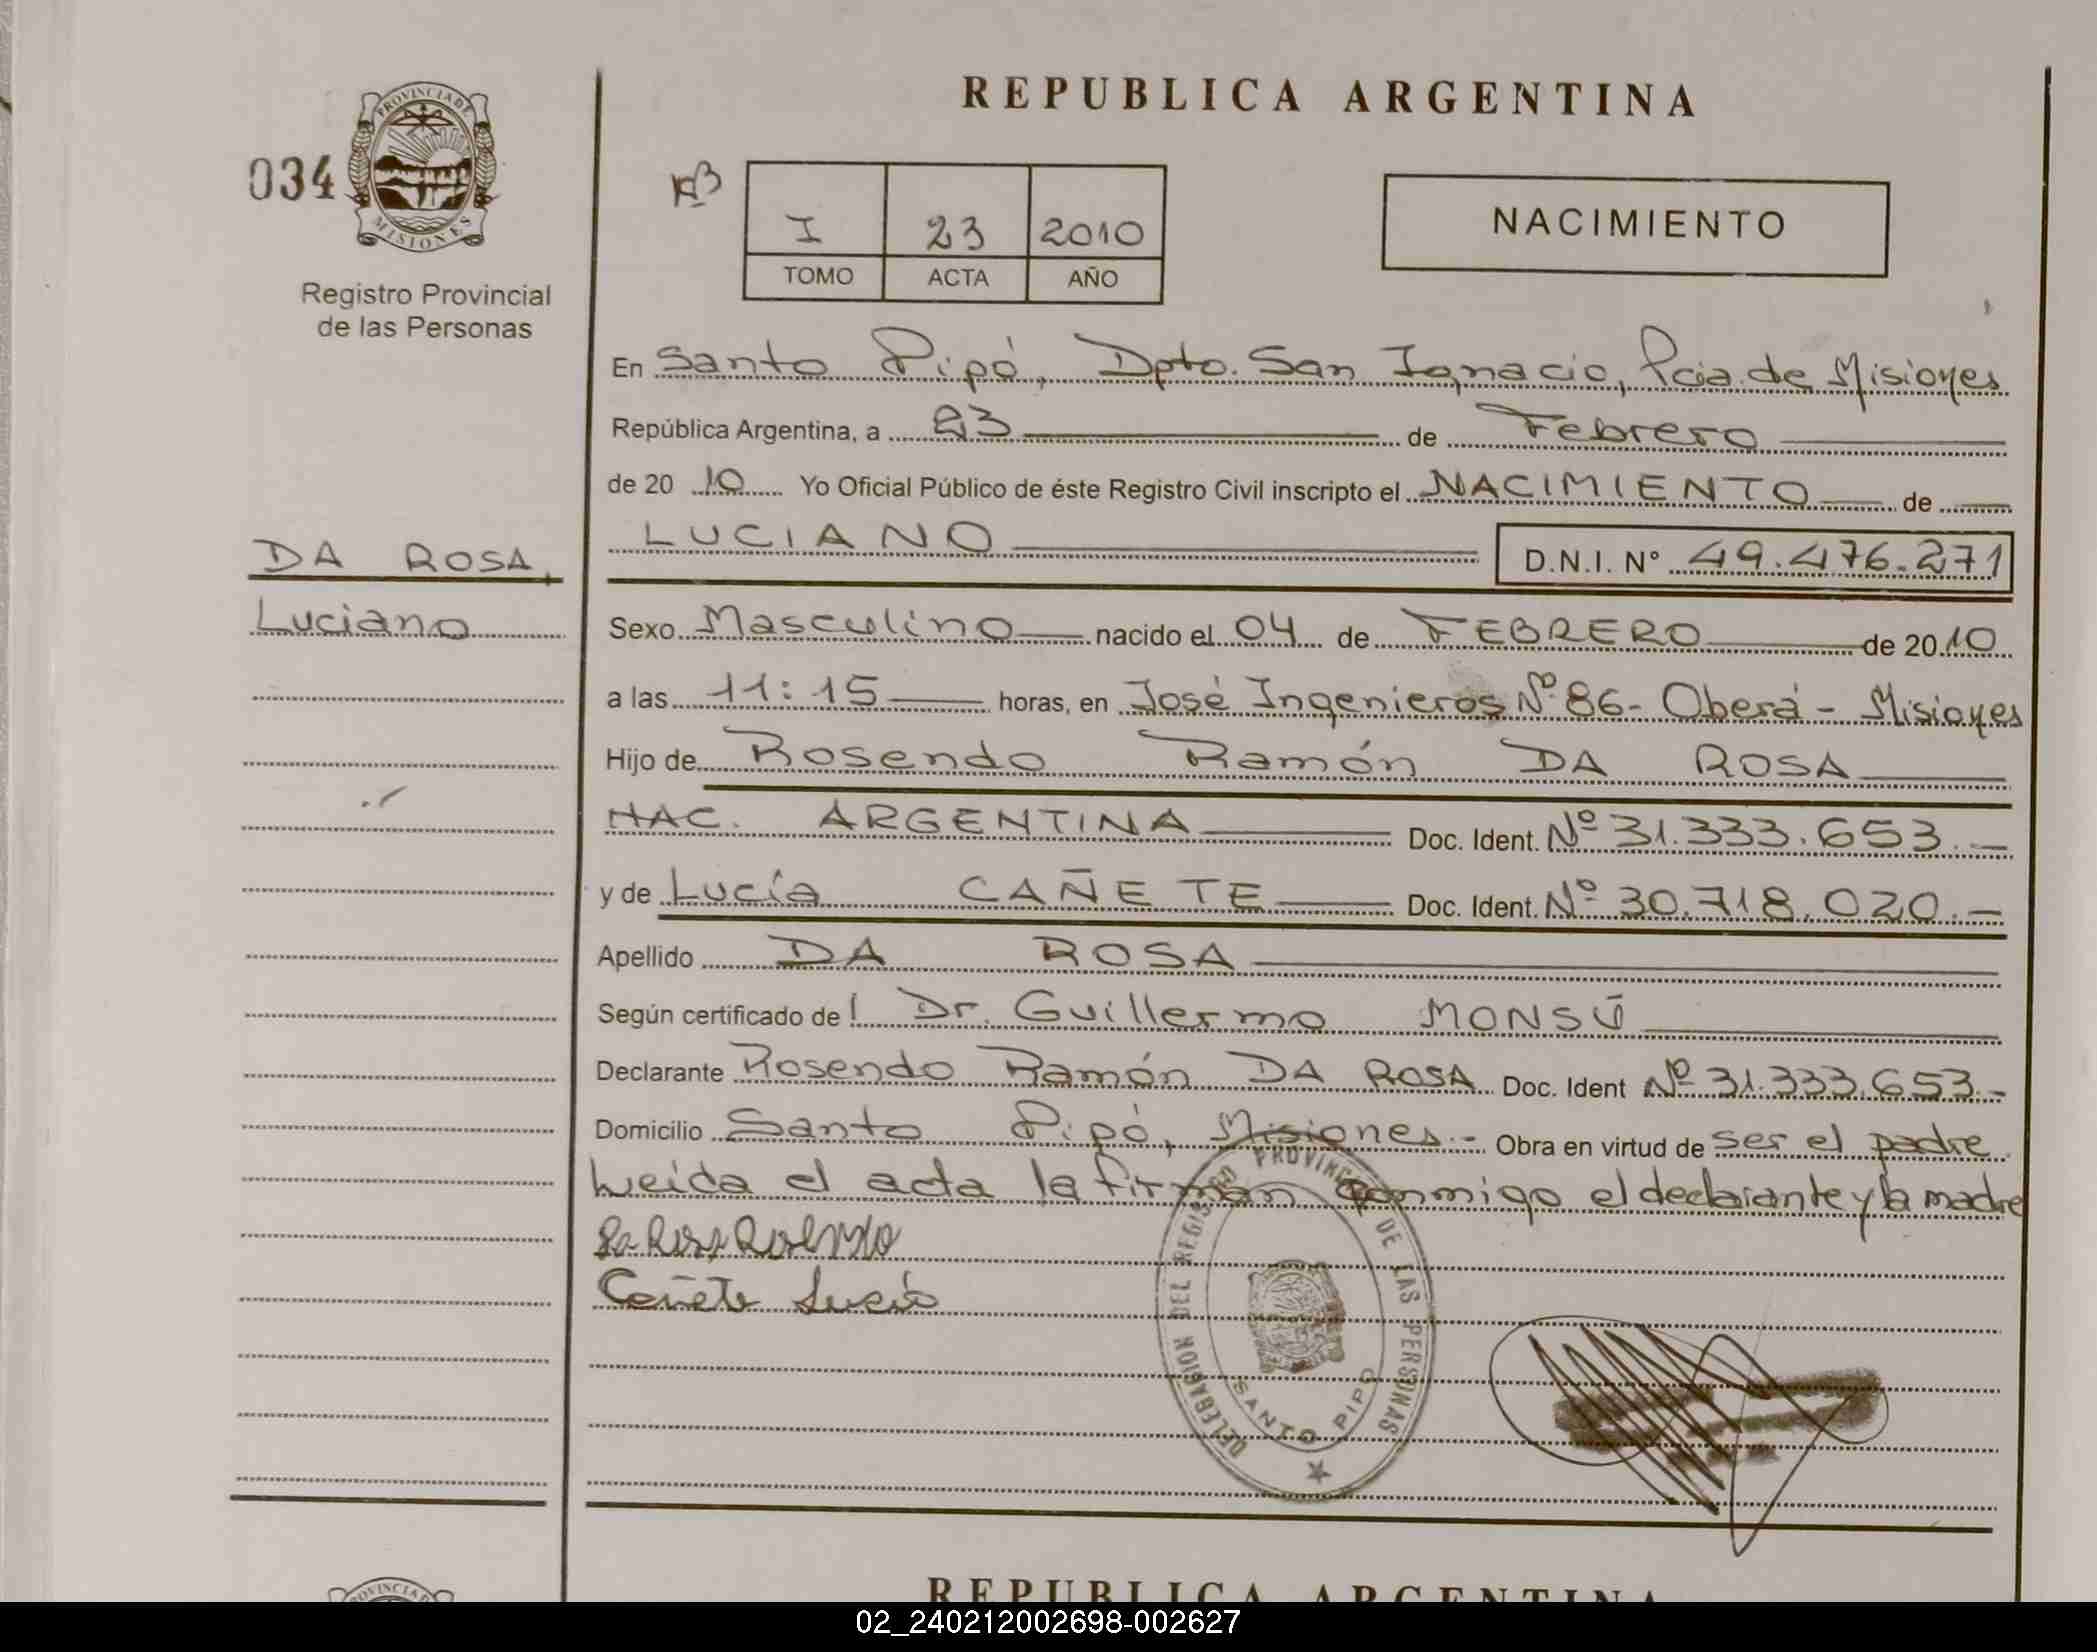 REPUBLICA ARGENTINA
034
PROVINCIA DE
MISIONES
Registro Provincial
de las Personas
I 23 2010
TOMO ACTA AÑO
NACIMIENTO
En Santo Pipó, Dpto. San Ignacio, Pcia. de Misiones
República Argentina, a 23 de Febrero
de 20 10 Yo Oficial Público de éste Registro Civil inscripto el NACIMIENTO de
LUCIANO D.N.I. Nº 49.476.271
DA ROSA,
Luciano
Sexo Masculino nacido el 04 de FEBRERO de 20 10
a las 11:15 horas, en José Ingenieros Nº 86- Oberá - Misiones
Hijo de Rosendo Ramón DA ROSA
NAC. ARGENTINA Doc. Ident. Nº 31.333.653.-
y de Lucía CAÑETE Doc. Ident. Nº 30.718.020.-
Apellido DA ROSA
Según certificado del Dr. Guillermo MONSÚ
Declarante Rosendo Ramón DA ROSA Doc. Ident Nº 31.333.653.-
Domicilio Santo Pipó, Misiones.- Obra en virtud de ser el padre
Leída el acta la firman conmigo el declarante y la madre
Da Rosa Rosendo
Cañete Lucía
DELEGACION DEL REGISTRO PROVINCIAL DE LAS PERSONAS
SANTO PIPO
PROVINCIA
REPUBLICA ARGENTINA
02_240212002698-002627